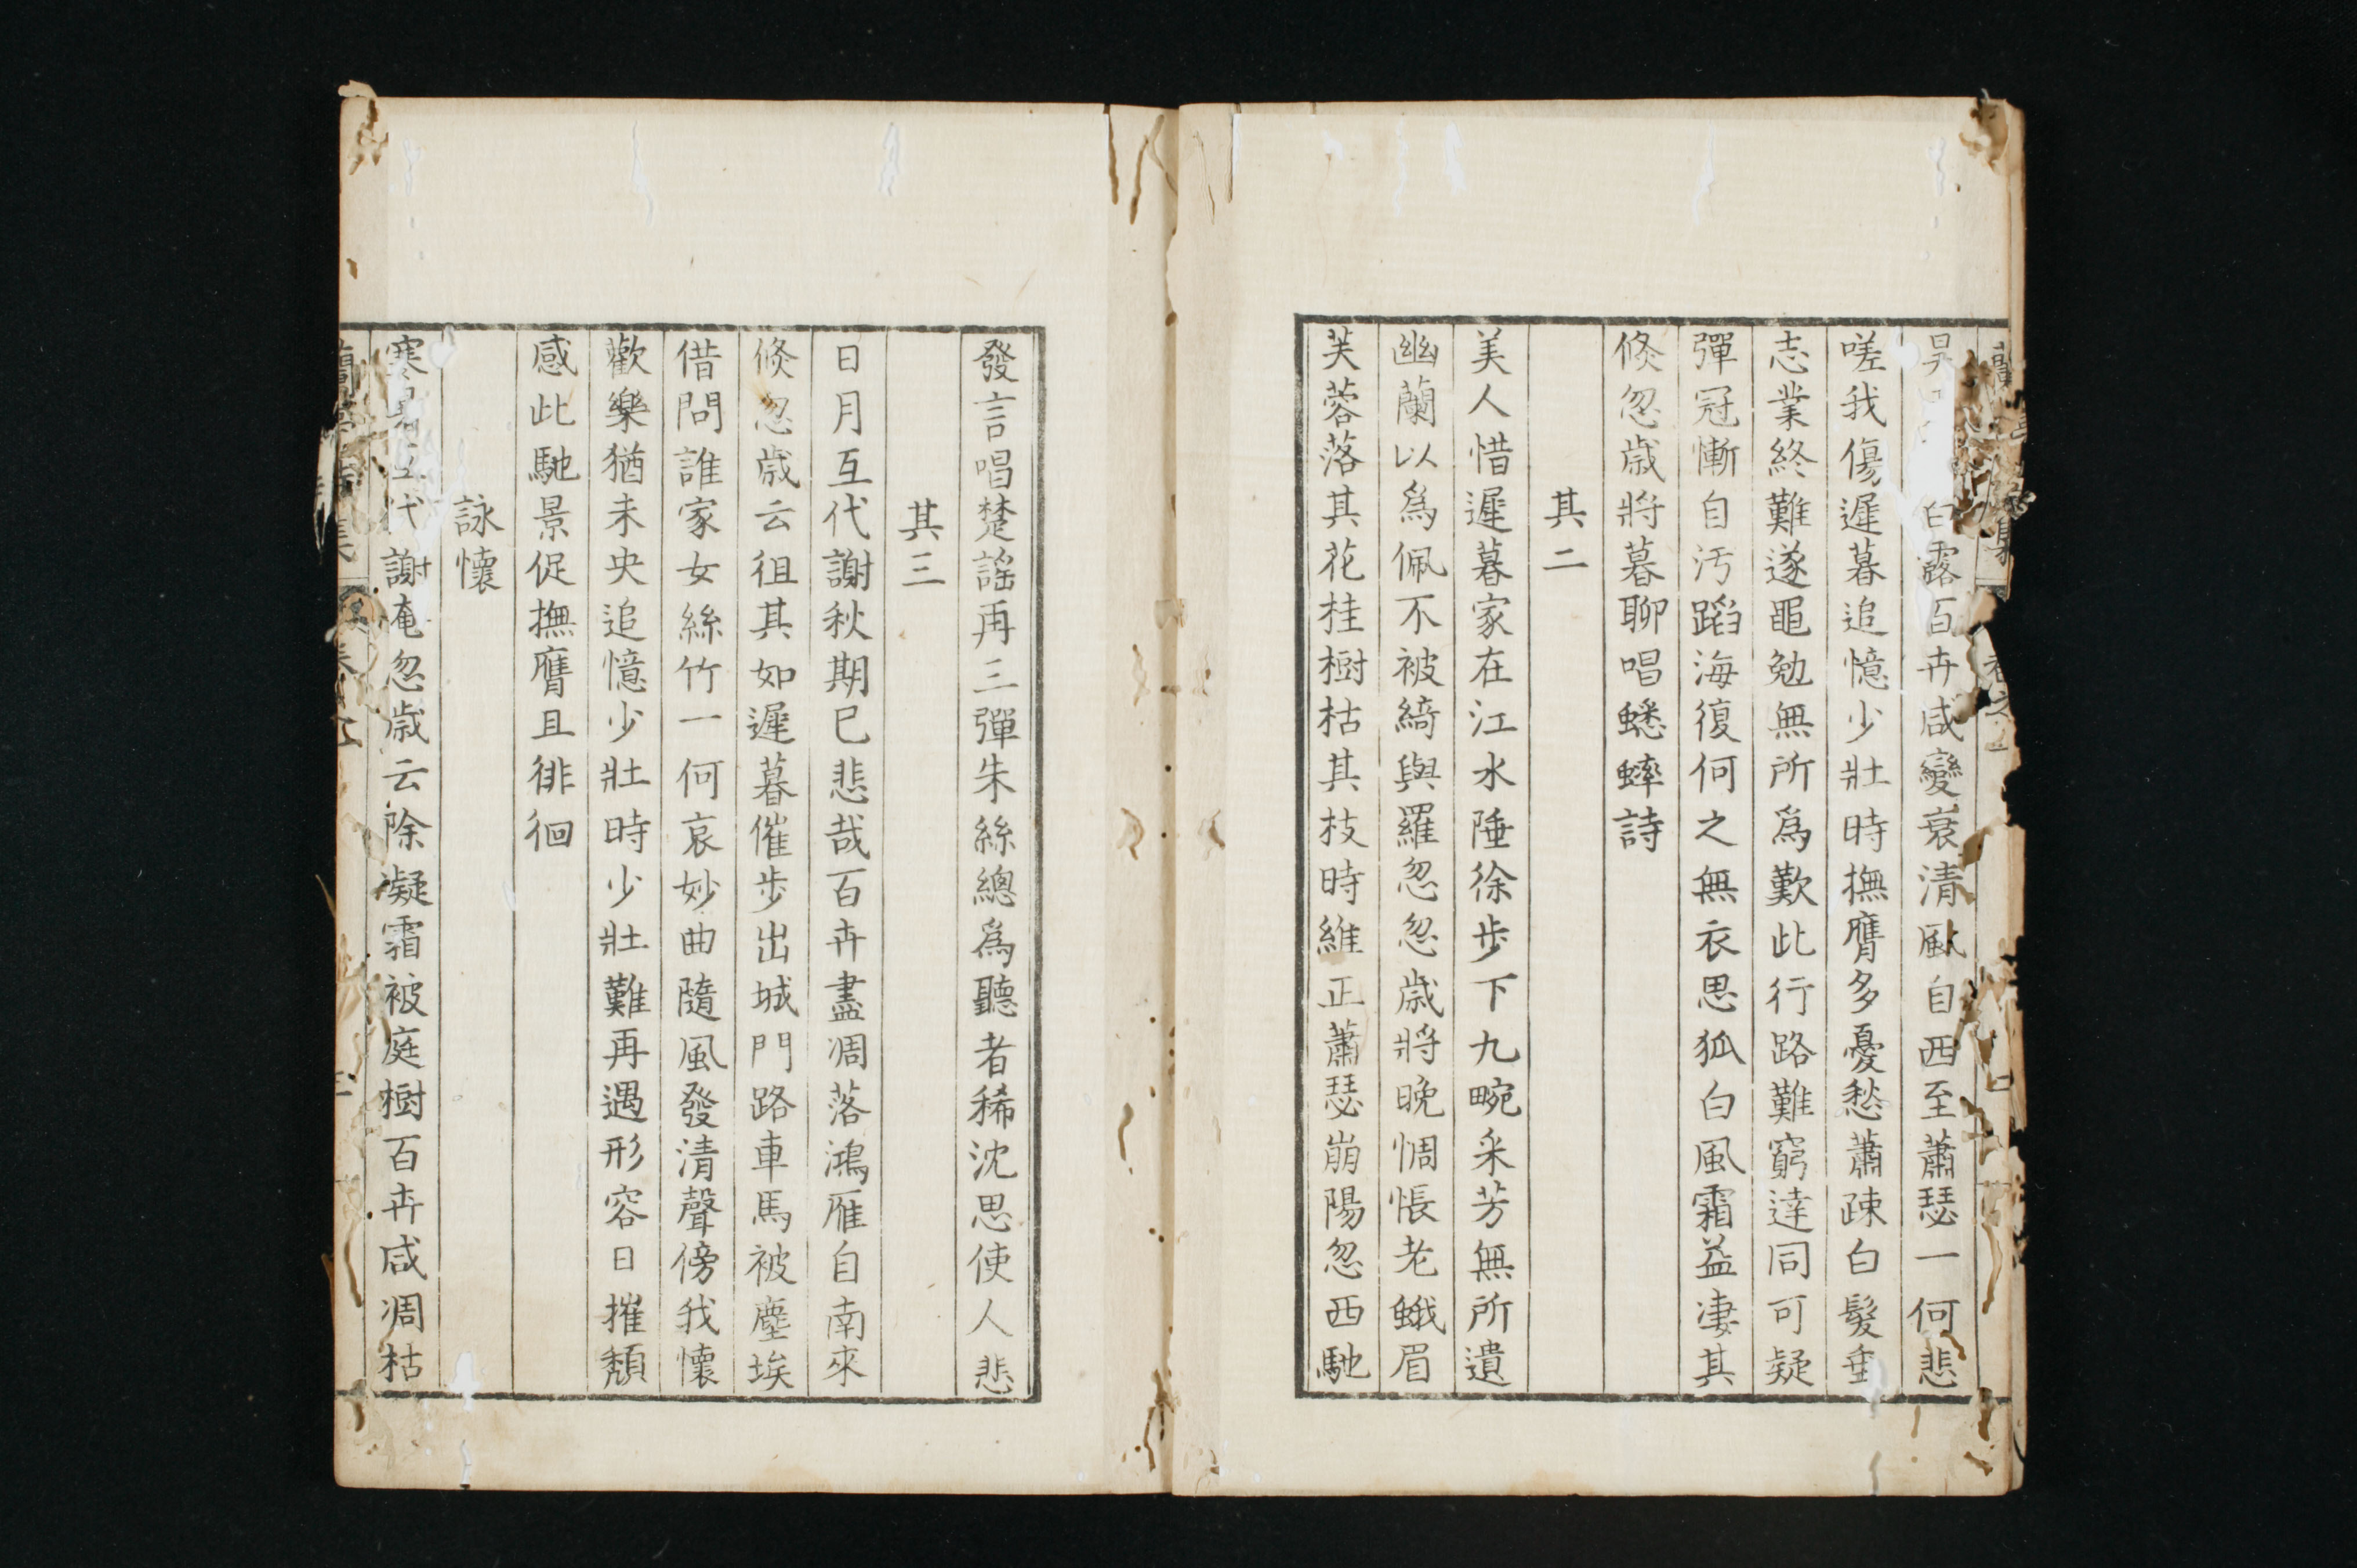 昊白露百卉咸變衰清風自西至蕭瑟一何悲
嗟我傷遲暮追憶少壯時撫膺多憂愁蕭疎白髮垂
志業終難遂黽勉無所爲歎此行路難窮達同可疑
彈冠慚自汚蹈海復何之無衣思狐白風霜益凄其
倐忽歲將暮聊唱蟋蟀詩
其二
美人惜遲暮家在江水陲徐步下九畹采芳無所遺
幽蘭以爲佩不被綺與羅忽忽歲將晚惆悵老蛾眉
芙蓉落其花桂樹枯其枝時維正蕭瑟崩陽忽西馳
發言唱楚謠再三彈朱絲總爲聽者稀沈思使人悲
其三
日月互代謝秋期已悲哉百卉盡凋落鴻雁自南來
倐忽歲云徂其如遲暮催步出城門路車馬被塵埃
借問誰家女絲竹一何哀妙曲隨風發清聲傍我懷
歡樂猶未央追憶少壯時少壯難再遇形容日摧頹
感此馳景促撫膺且徘徊
詠懷
寒暑互代謝奄忽歲云除凝霜被庭樹百卉咸凋枯